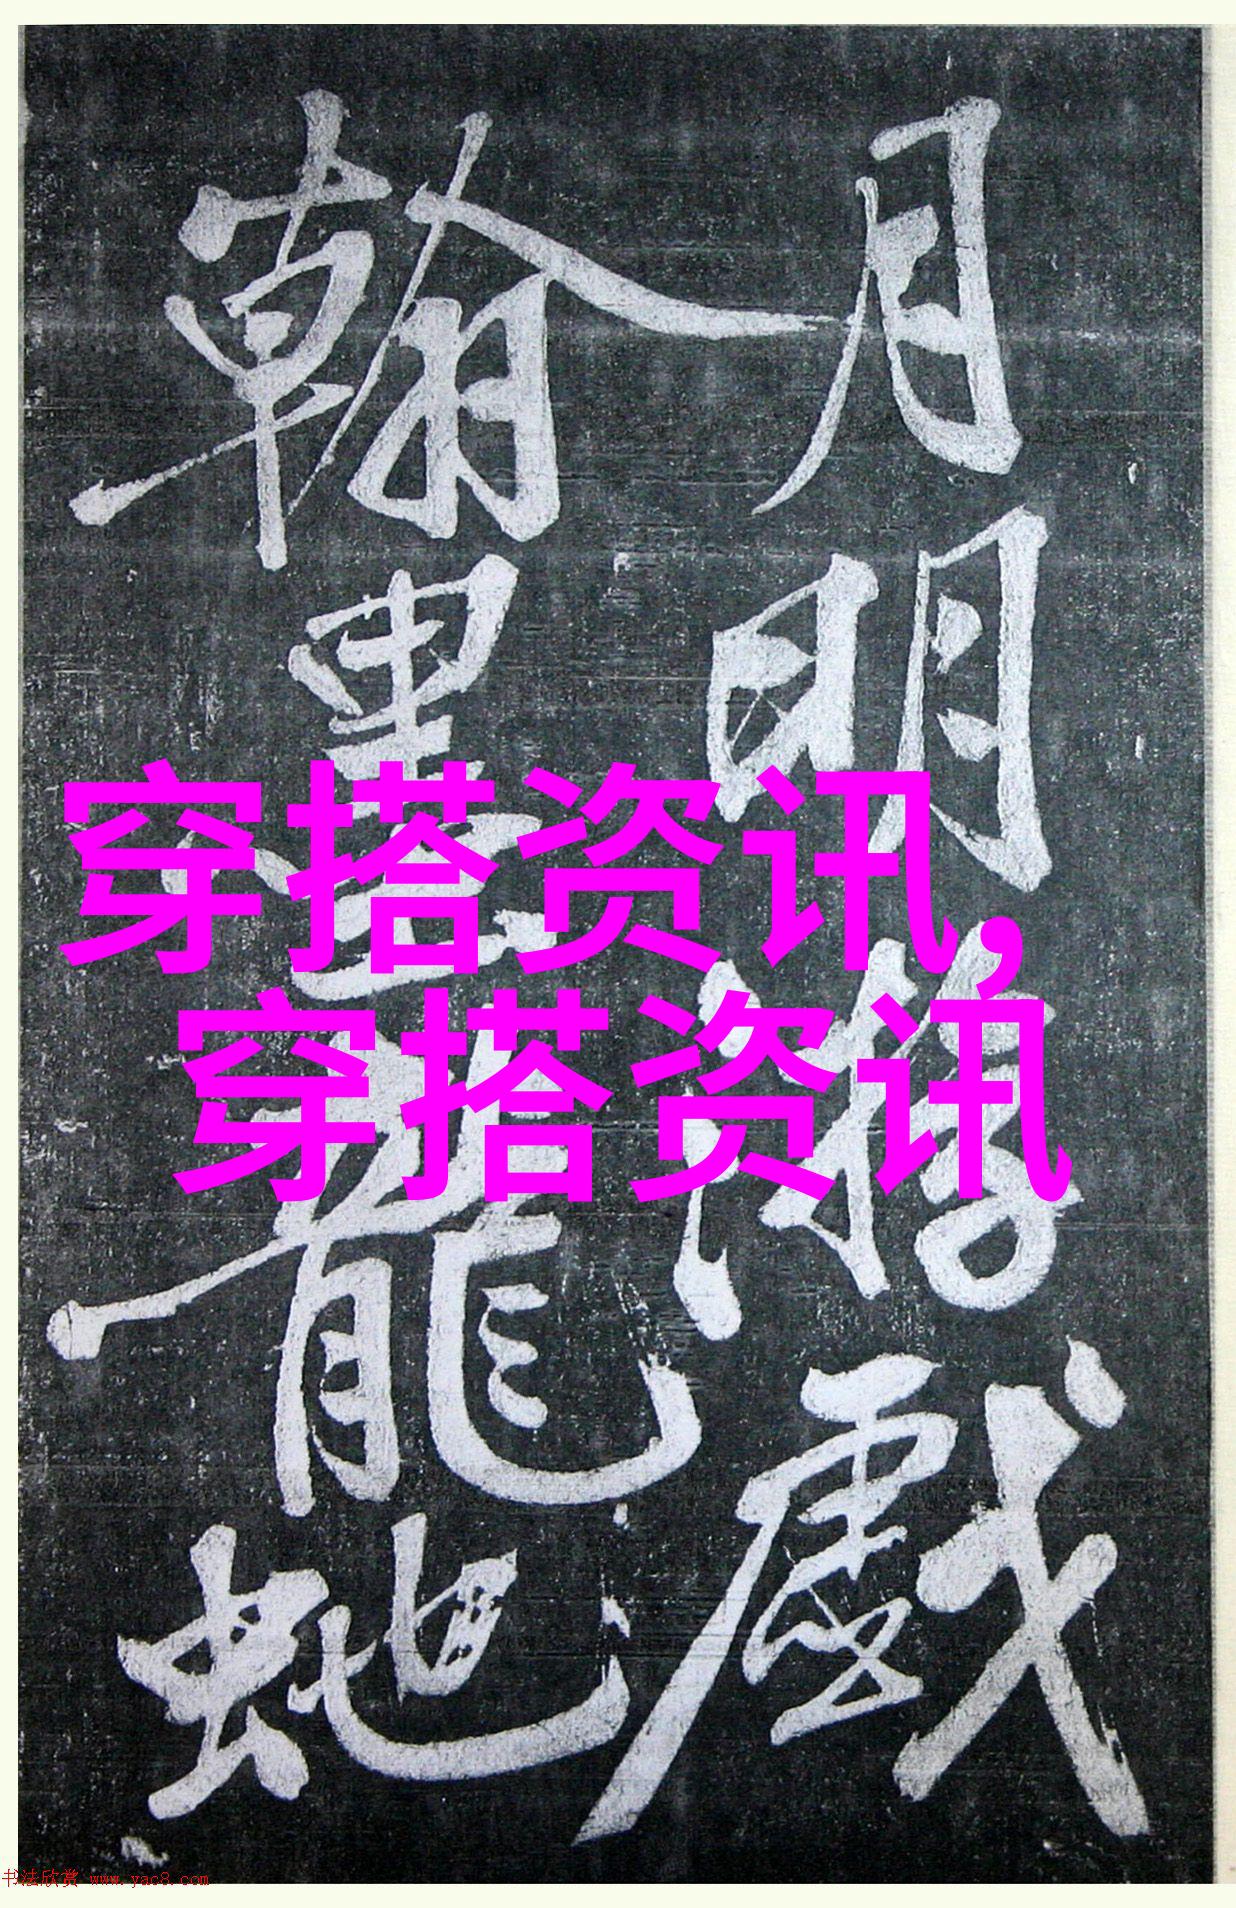 月明游戲
翰墨龍蛇
穿搭资讯,
穿搭资讯
书法欣赏 www.yac8.com